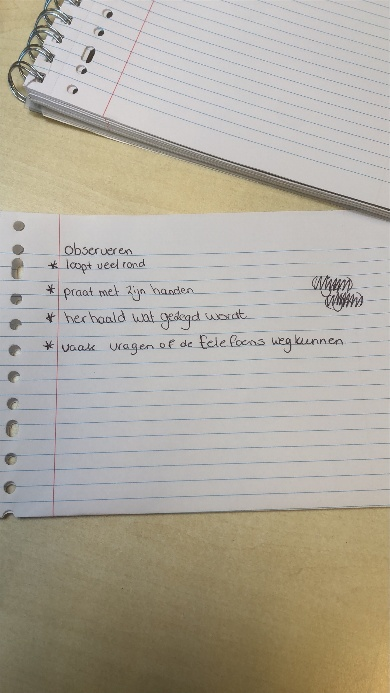 observeren
* loopt veel rond
* praat met zijn handen
* herhaald wat gezegd wordt
* vaak vragen of de telefoons weg kunnen